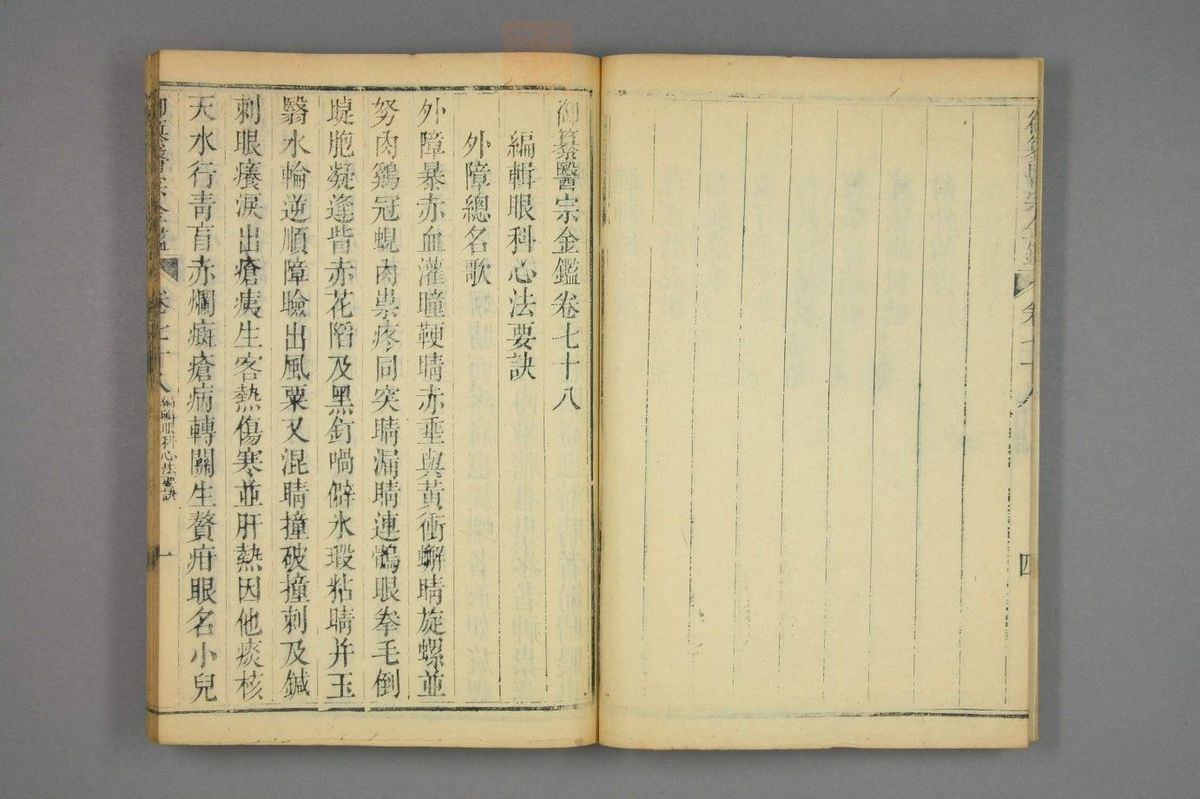 御纂醫宗金鑑卷七十八
編輯眼科心法要訣
外障總名歌
外障暴赤血灌瞳鞕睛赤垂與黃衝蠏睛旋螺並
努肉鷄冠蜆肉祟疼同突睛漏睛連鶻眼拳毛倒
睫胞凝逢眥赤花陷及黑釘喎僻氷瑕粘睛并玉
翳水輪逆順障瞼出風粟又混睛撞破撞刺及鍼
刺眼癢淚出瘡痍生客熱傷寒並肝熱因他痰核
天水行青盲赤爛痲瘡病轉關生贅疳眼名小兒
卷七十八
編輯眼科心法要訣
一
四